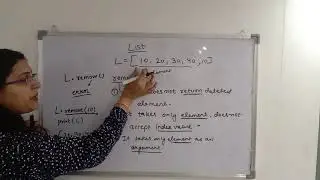 List
L = [10, 20, 30, 40, 10]
L = remove()
error
L = remove(10)
print(L
remove element
① does not return deleted
element.
it takes only element, does not
accept index value
It takes only element as an
argument